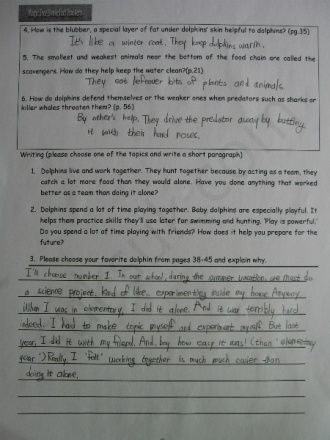 4. How is the blubber, a special layer of fat under dolphins' skin helpful to dolphins? (pg.35)
It's like a winter coat. They keep dolphins warm.
5. The smallest and weakest animals near the bottom of the food chain are called the
scavengers. How do they help keep the water clean?(p.21)
They eat leftover bits of plants and animals.
6. How do dolphins defend themselves or the weaker ones when predators such as sharks or
killer whales threaten them? (p. 56)
By other's help. They drive the predator away by butting
it with their hard noses.
Writing (please choose one of the topics and write a short paragraph)
1. Dolphins live and work together. They hunt together because by acting as a team, they
catch a lot more food than they would alone. Have you done anything that worked
better as a team than doing it alone?
2. Dolphins spend a lot of time playing together. Baby dolphins are especially playful. It
helps them practice skills they'll use later for swimming and hunting. 'Play is powerful.'
Do you spend a lot of time playing with friends? How does it help you prepare for the
future?
3. Please choose your favorite dolphin from pages 38-45 and explain why.
I'll choose number 1. In our school, during the summer vacation, we must do
a science project. Kind of like.. experimenting inside my home. Anyway
When I was in elementary, I did it alone. And it was terribly hard
indeed. I had to make topic myself and experiment myself. But last
year, I did it with my friend. And, boy how easy it was! (than 'elementary
year') Really, I 'felt' working together is much much easier than
doing it alone.